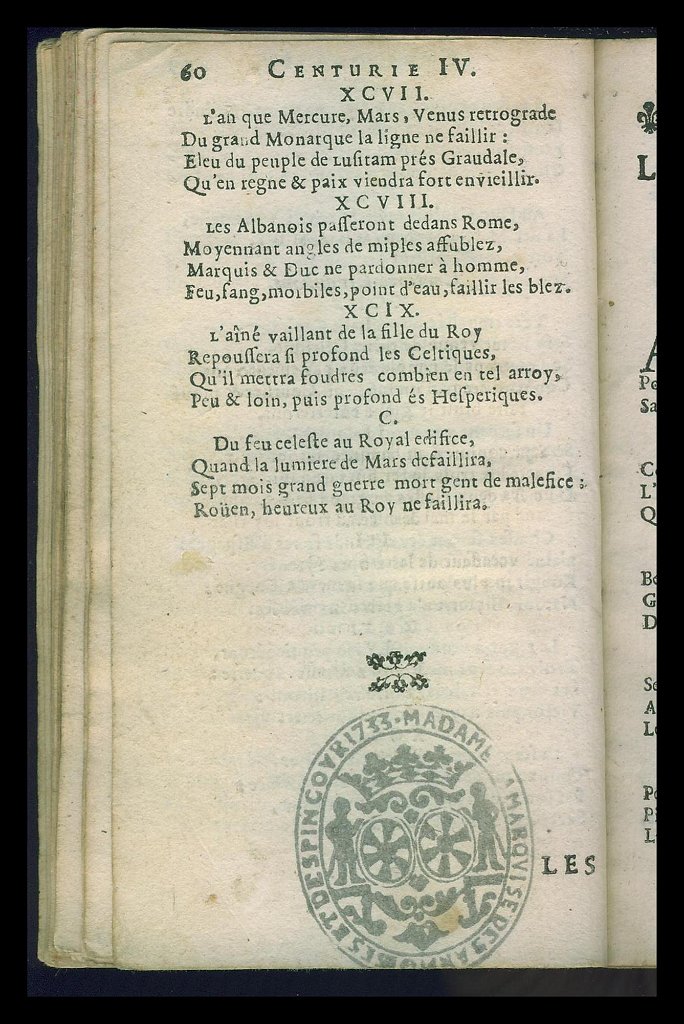 60 CENTURIE IV.
XCVII.
L'an que Mercure, Mars, Venus retrograde
Du grand Monarque la ligne ne faillir :
Eleu du peuple de Lusitam prés Graudale,
Qu'en regne & paix viendra fort envieillir.
XCVIII.
Les Albanois paſſeront dedans Rome,
Moyennant angles de miples affublez,
Marquis & Duc ne pardonner à homme,
Feu,ſang,moibiles,point d'eau,faillir les blez.
XCIX.
L'aîné vaillant de la fille du Roy
Repouſſera ſi profond les Celtiques,
Qu'il mettra foudres combien en tel arroy,
Peu & loin, puis profond és Heſperiques.
C.
Du feu celeſte au Royal edifice,
Quand la lumiere de Mars defaillira,
Sept mois grand guerre mort gent de malefice :
Roüen, heureux au Roy ne faillira.
MADAME MARQVISE DES ARMOISES ET DESPINCOVR 1733
LES
L
Po
Sa
C
L'
Q
Be
G
D
Se
A
Le
Po
Pl
L